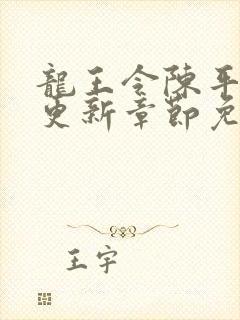 龍王令陳平
更新章節免
王宇